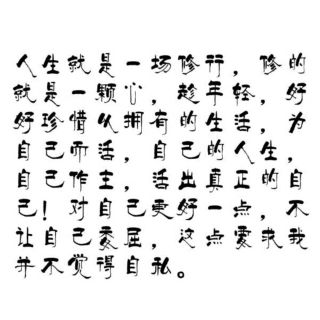 人生就是一场修行，修的
就是一颗心，趁年轻，好
好珍惜从拥有的生活，为
自己而活，自己的人生，
自己作主，活出真正的自
己！对自己更好一点，不
让自己委屈，这点要求我
并不觉得自私。